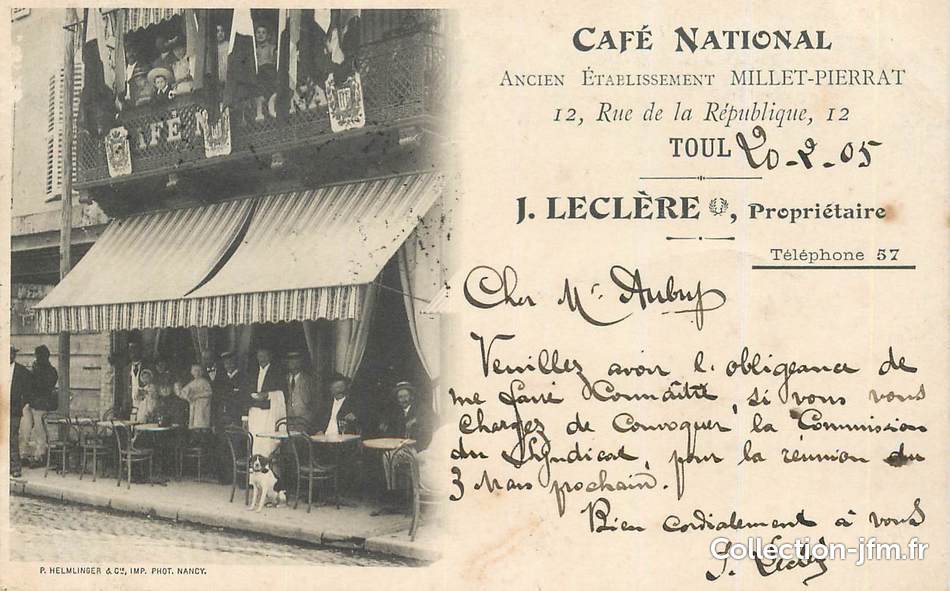 CAFÉ NATIONAL
ANCIEN ÉTABLISSEMENT MILLET-PIERRAT
12, Rue de la République, 12
TOUL 20-2-05
J. LECLÈRE, Propriétaire
Téléphone 57
Cher Mr. Aubry
Veuillez avoir l'obligeance de
me faire Connaître, si vous vous
chargez de Convoquer la Commission
du Syndicat, pour la réunion du
3 Mars prochain.
Bien cordialement à vous
J. Leclère
CAFÉ NA
P. HELMLINGER & Cie, IMP. PHOT. NANCY.
Collection-jfm.fr